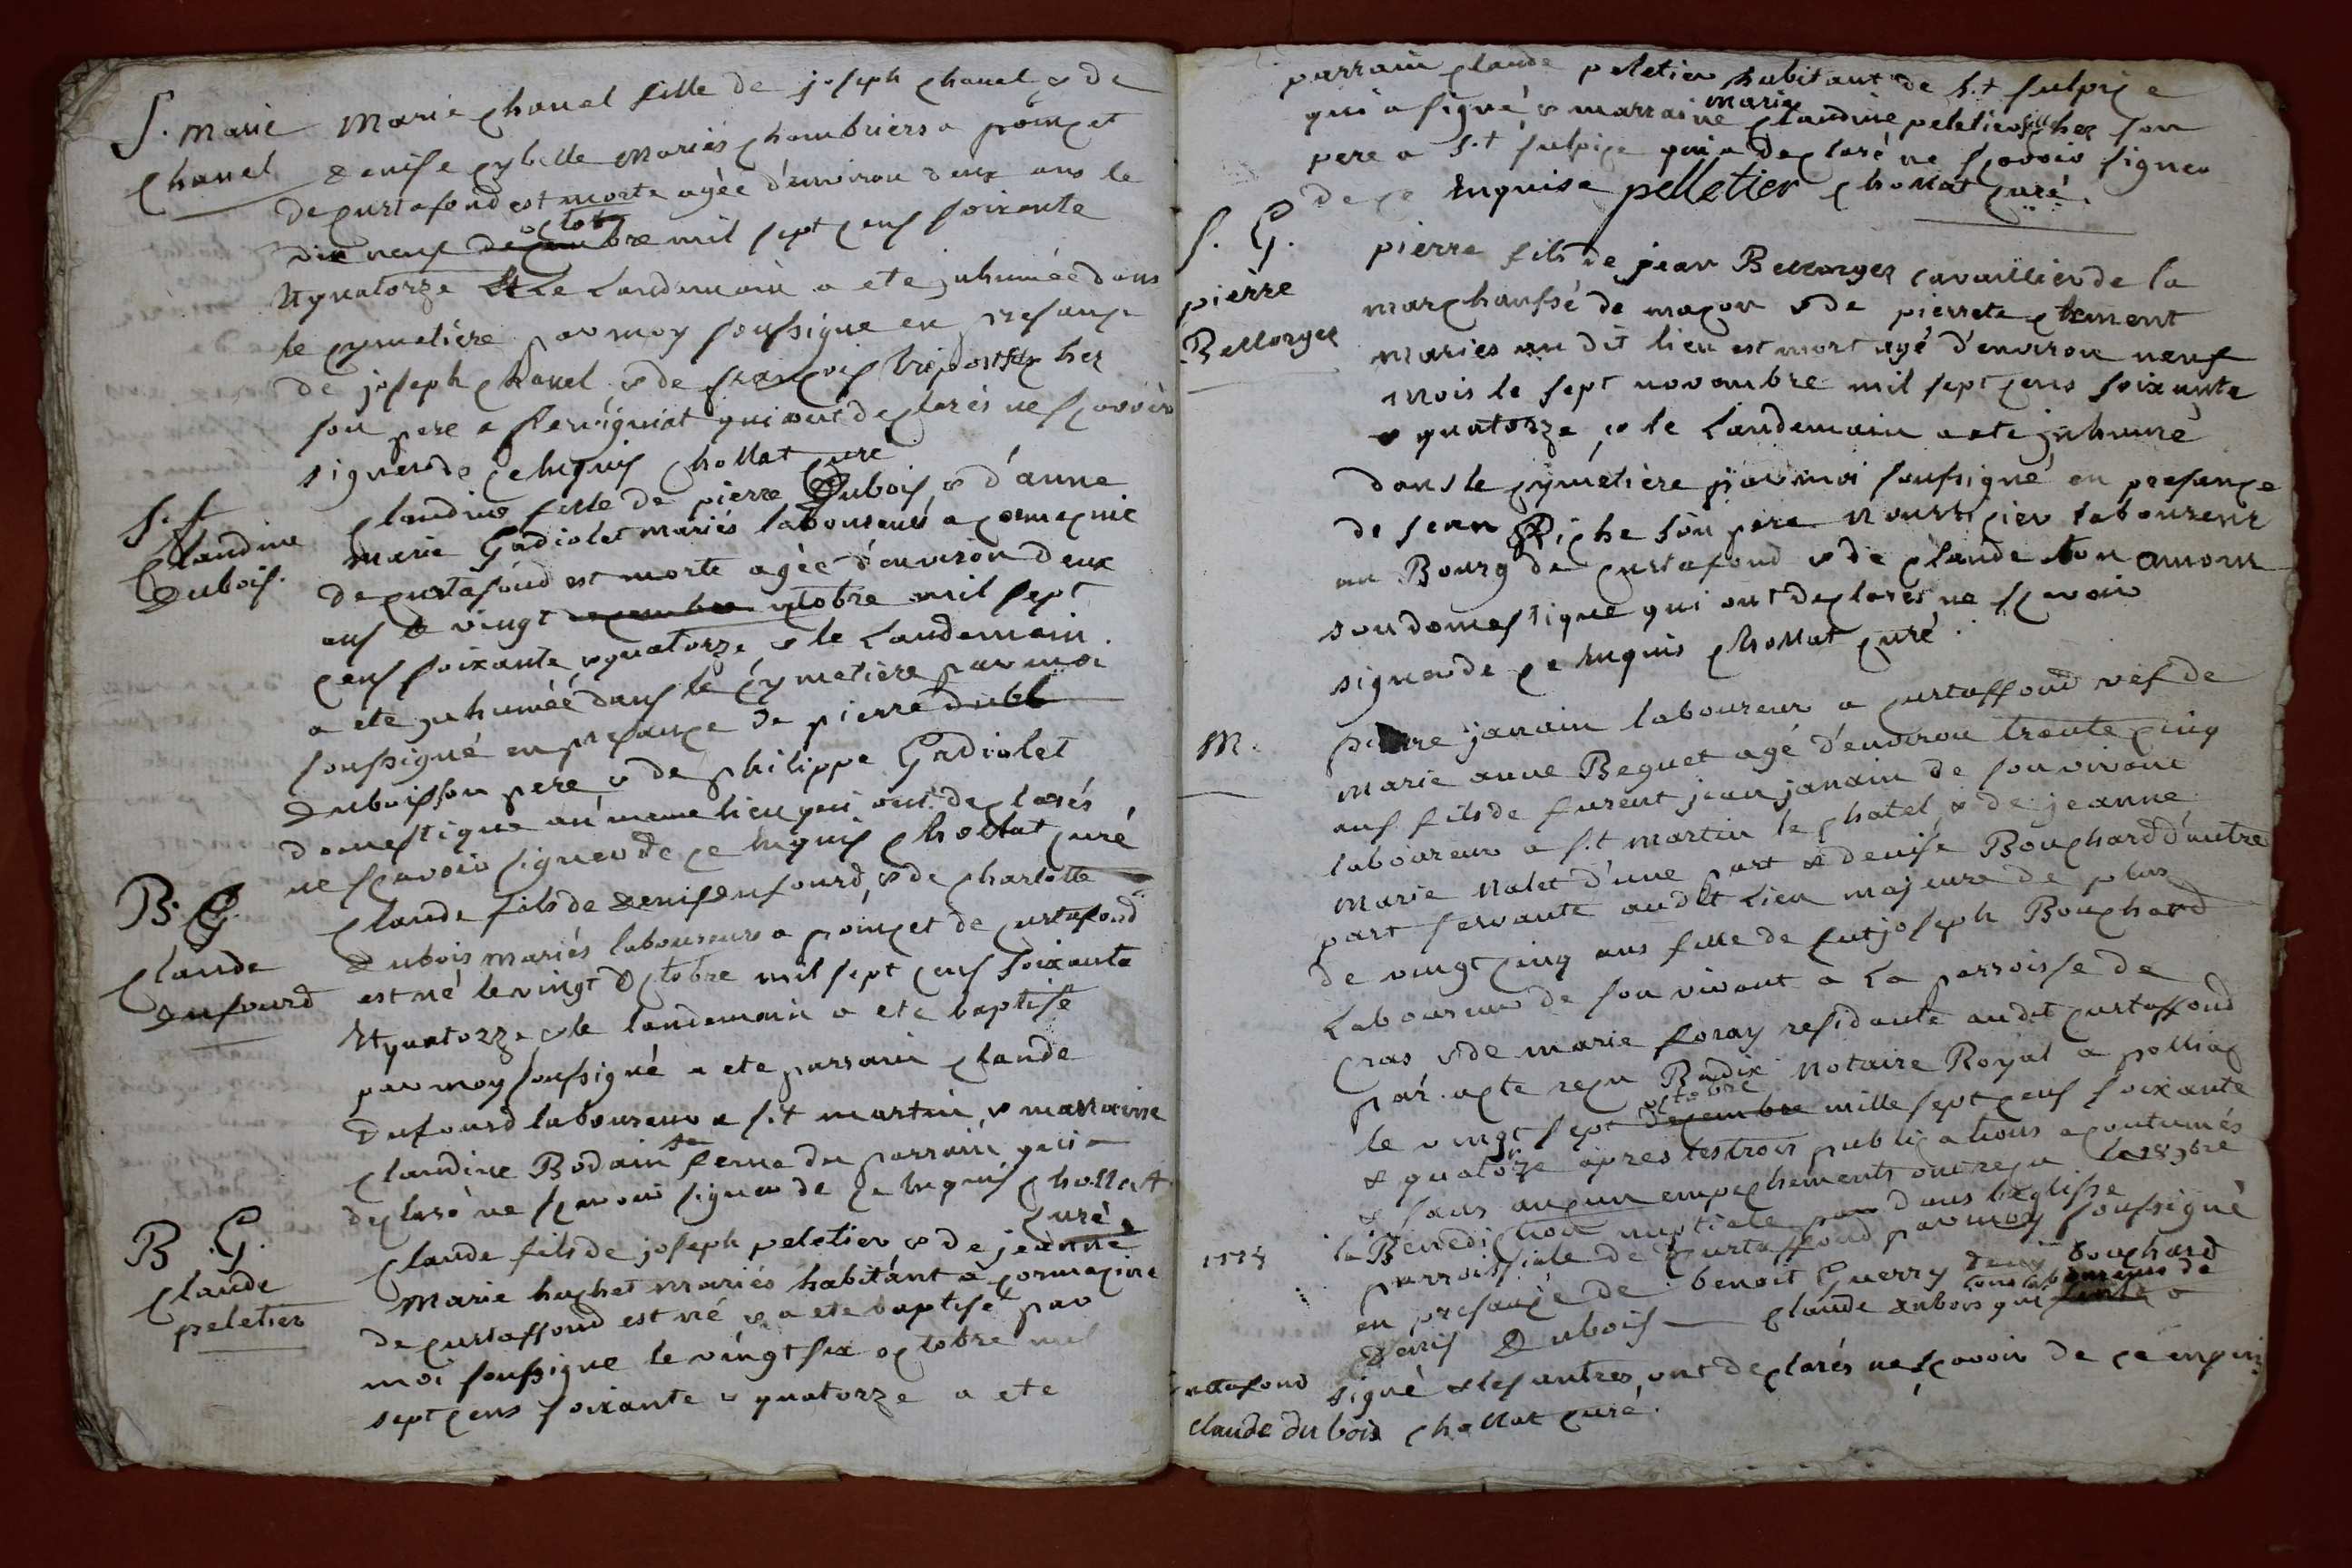 S. Marie
Chanel
Marie Chanel fille de joseph Chanel & de
denise Cybelle mariés Chambriers a poinçet
de Curtafond est morte agée d'environ deux ans le
dix neuf decembre octobre mil sept cens soixante
et quatorze et le Landemain a ete jnhumée dans
le cymetière par moy soussigne en presance
de joseph Chanel & de françois chez
son pere a qui ont declarés ne scavoir
signer de ce enquis Chollat Curé
S. f
Claudine
Dubois.
Claudine fille de pierre Dubois & d'anne
marie Gadiolet mariés laboureurs a Cormacine
de Curtafond est morte agée d'environ deux
ans le vingt decembre octobre mil sept
cens soixante & quatorze, & le Landemain
a ete jnhuméé dans le Cymetière par moi
soussigné en presance de pierre dub
Dubois son pere & de philippe Gadiolet
domestique au meme lieu qui ont declarés
ne scavoir signer de ce enquis Chollat curé
B. G.
Claude
Dufourd
Claude fils de denis Dufourd, & de Charlotte
Dubois mariés laboureurs a poinçet de Curtafond
est né le vingt Octobre mil sept cens soixante
et quatorze & le landemain a ete baptisé
par moy soussigné a ete parrain Claude
Dufourd laboureur a s.t martin & marraine
Claudine Bodain sa feme du parrain qui a
declaré ne scavoir signer de ce enquis Chollat
Curé
B. G.
Claude
peletier
Claude fils de joseph peletier & de jeanne
Marie huchet mariés habitant a Cormacine
de Curtaffond est né & a ete baptisé par
moi soussigne le vingt six octobre mil
sept cens soixante & quatorze a ete
parrain Claude peletier habitant de s.t sulpice
qui a signé & marraine marie Claudine peletier fille chez son
pere a s.t sulpice qui a declaré ne scavoir signer
de ce enquise pelletier Chollat Curé.
S. G.
pièrre
Bellorger
pierre fils de jean Bellorger cavaillier de la
marchaussé de maçon & de pierrete Clement
mariés au dit lieu est mort agé d'environ neuf
mois le sept novambre mil sept cens soixante
& quatorze, & le Landemain a ete jnhumé
dans le cymetière par moi soussigné en presance
de jean Piche son pere nourricier laboureur
au Bourg de Curtafond & de Claude
son domestique qui ont declarés ne scavoir
signer de ce enquis Chollat curé.
M.
pierre janain laboureur a Curtaffond vef de
marie anne Beguet agé d'environ trente cinq
ans fils de furent jean janain de son vivant
laboureur a s.t martin le Chatel, & de jeanne
marie Nalet d'une part & denise Bouchard d'autre
part servante audit Lieu majeure de plus
de vingt cinq ans fille de fut joseph Bouchard
Laboureur de son vivant a La parroisse de
Cras & de marie foray residante audit Curtaffond
par acte reçu Bodix Notaire Royal a polliac
le vingt sept decembre octobre mille sept cens soixante
& quatorze après les trois publications acoutumés
& sans aucun empechements ont reçu le 28 9bre
1774
la Benediction nuptiale par dans l'eglisse
parroissiale de Curtaffond par moy soussigné
en presance de benoit Guerry denis Bouchard
Denis Dubois Claude Dubois qui tous laboureurs de
Curtafond signé & les autres ont declarés ne scavoir de ce enquis
claude du bois Chollat curé.